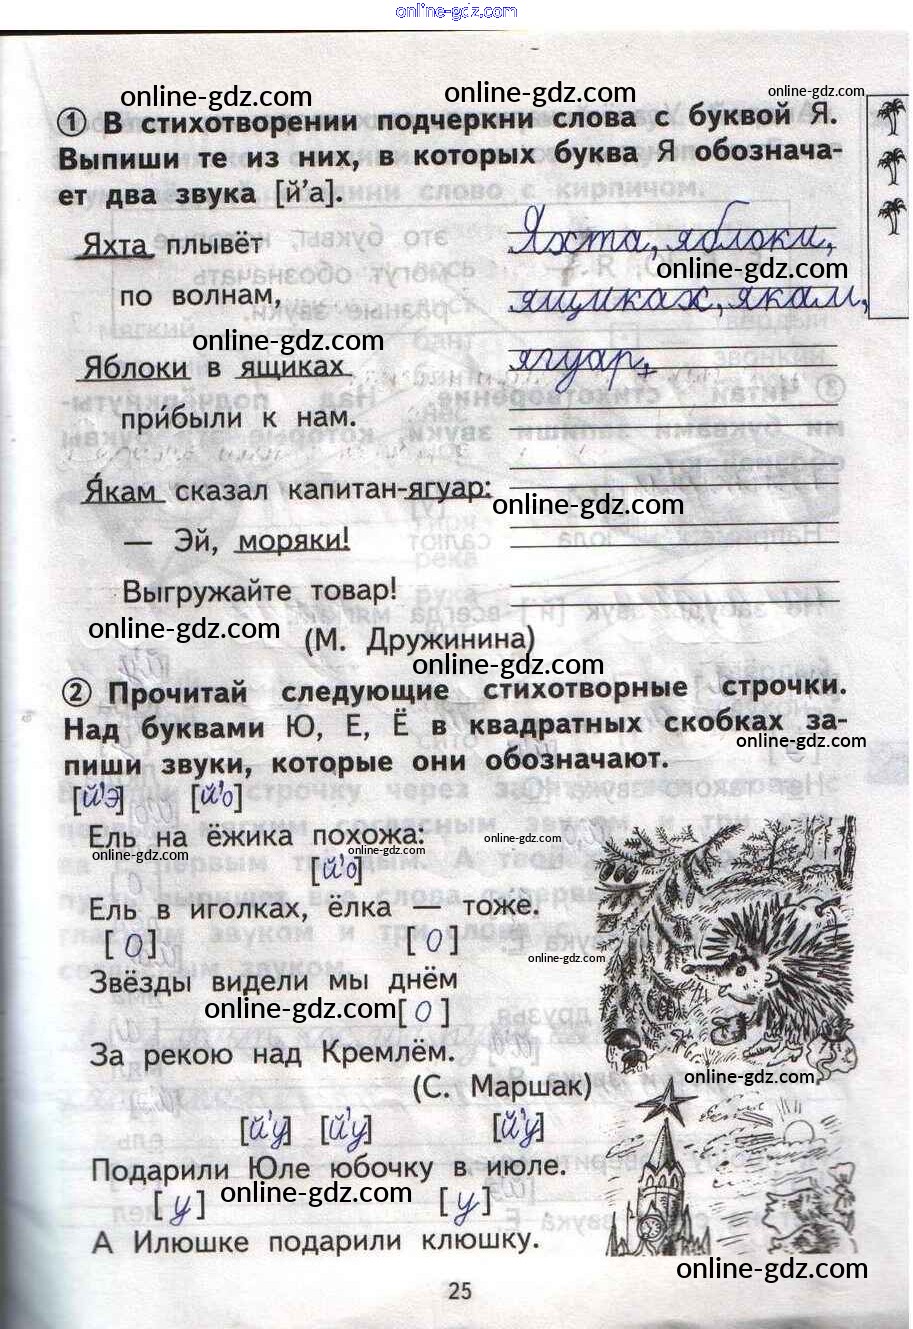 online-gdz.com
online-gdz.com online-gdz.com online-gdz.com
① В стихотворении подчеркни слова с буквой Я.
Выпиши те из них, в которых буква Я обознача-
ет два звука [й’а].
Яхта плывёт Яхта, яблоки,
online-gdz.com
по волнам, ящиках, якам,
online-gdz.com
Яблоки в ящиках ягуар,
при́были к нам.
Я́кам сказал капитан-ягуар:
online-gdz.com
— Эй, моряки!
Выгружайте товар!
online-gdz.com
(М. Дружинина)
online-gdz.com
② Прочитай следующие стихотворные строчки.
Над буквами Ю, Е, Ё в квадратных скобках за-
online-gdz.com
пиши звуки, которые они обозначают.
[й’э] [й’о]
Ель на ёжика похожа:
online-gdz.com online-gdz.com online-gdz.com
[й’о]
Ель в иголках, ёлка — тоже.
[о] [о]
online-gdz.com
Звёзды видели мы днём
online-gdz.com [о]
За рекою над Кремлём.
online-gdz.com
(С. Маршак)
[й’у] [й’у] [й’у]
Подарили Юле юбочку в июле.
[у] online-gdz.com [у]
А Илюшке подарили клюшку.
online-gdz.com
25